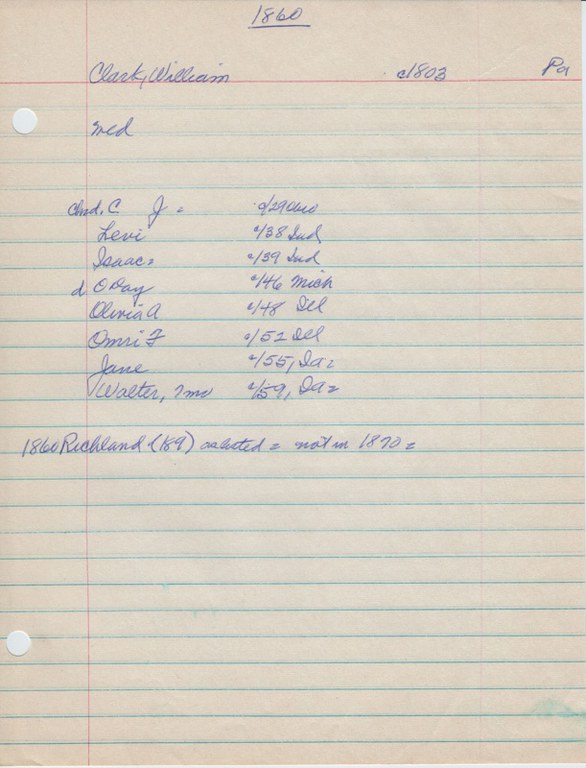 1860
Clark, William c1803 Pa
md
chd. C J = c/29 Ohio
Levi c/38 Ind
Isaac = c/39 Ind
d O Day c/46 Mich
Olivia A c/48 Ill
Omri F c/52 Ill
Jane c/55, Ia =
Walter, 7mo c/59, Ia =
1860 Richland (189) = not in 1870 =